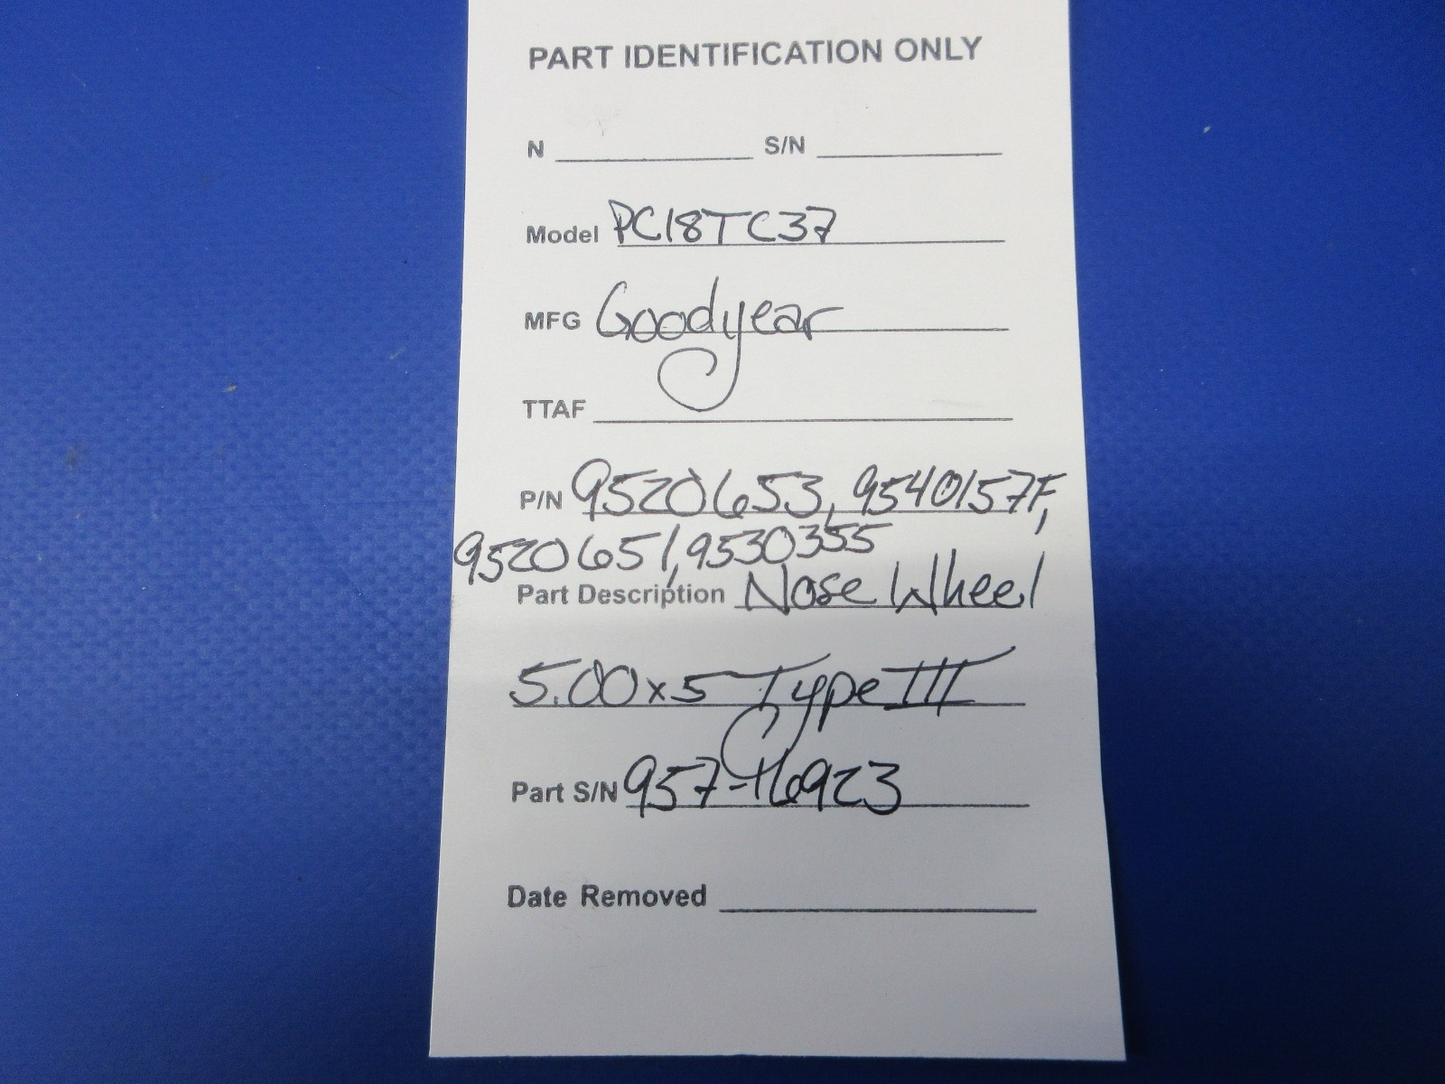 PART IDENTIFICATION ONLY
N S/N
Model PC18TC37
MFG Goodyear
TTAF
P/N 9520653, 9540157F,
9520651, 9530355
Part Description Nose Wheel
5.00x5 Type III
Part S/N 957-16923
Date Removed